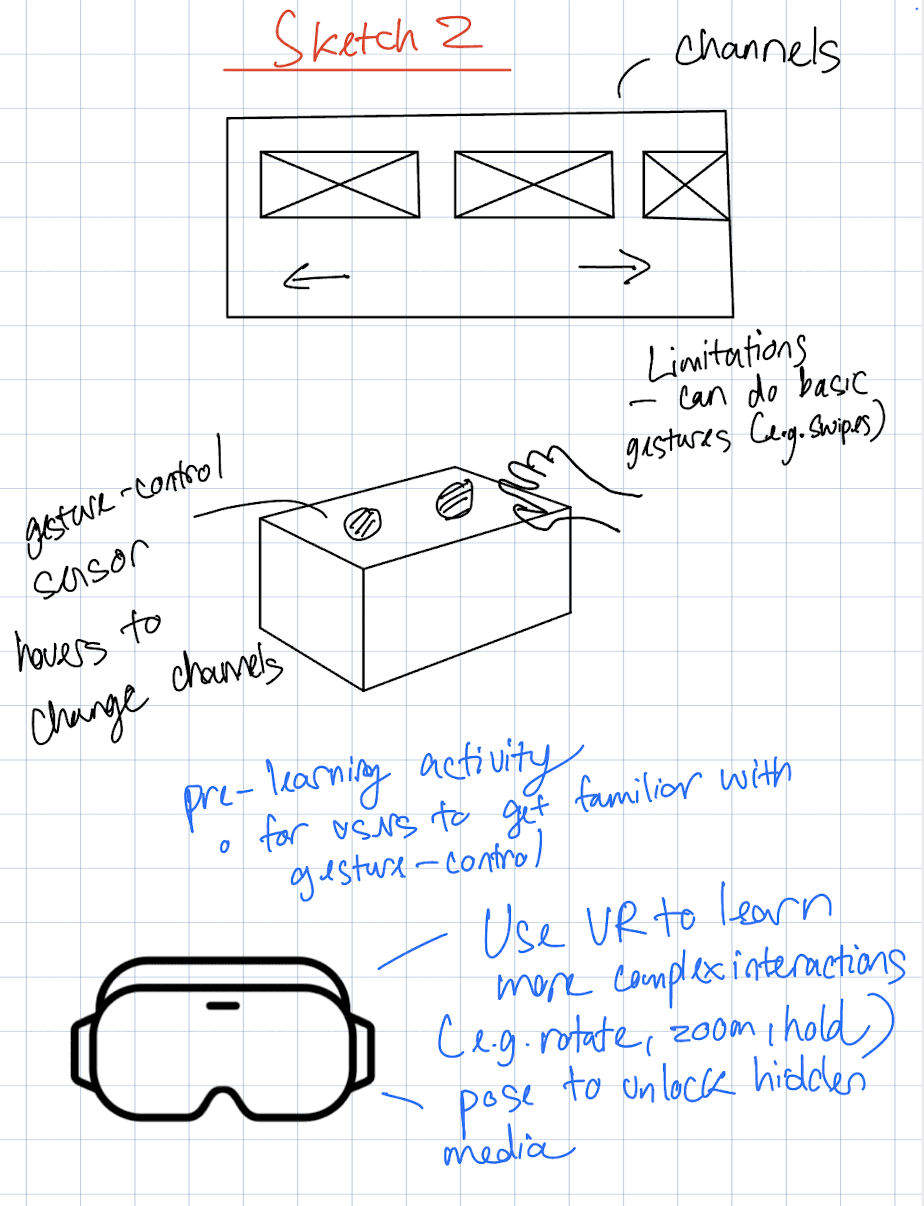 Sketch 2
channels
Limitations
- can do basic
gestures (e.g. swipes)
gesture-control
sensor
hovers to
change channels
pre-learning activity
• for users to get familiar with
gesture-control
Use VR to learn
more complex interactions
(e.g. rotate, zoom, hold)
pose to unlock hidden
media